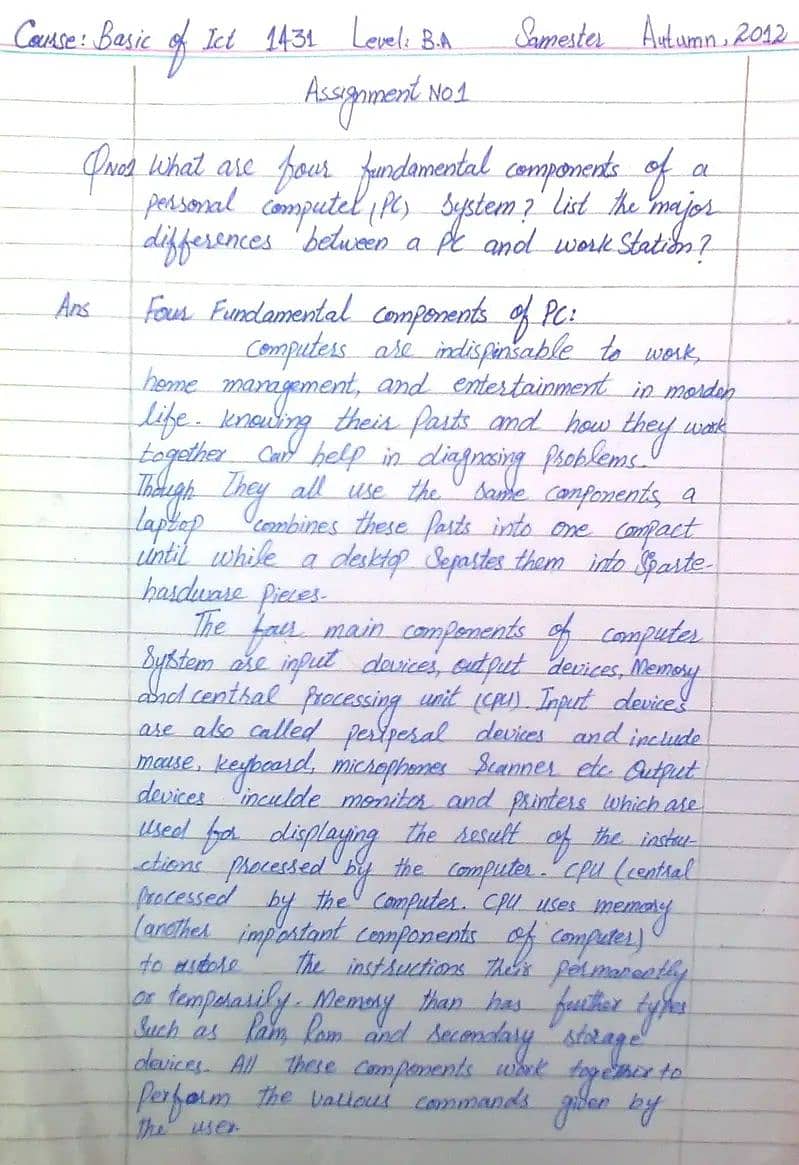 Course: Basic of Ict 1431 Level: B.A Samester Autumn, 2012
Assignment No1
QNo1 What are four fundamental components of a
personal computer (PC) System? List the major
differences between a PC and work Station?
Ans Four Fundamental components of PC:
Computers are indispinsable to work,
home management, and entertainment in morden
life. knowing their Parts and how they work
together Can help in diagnosing Problems.
Though They all use the same components, a
laptop combines these Parts into one compact
until while a desktop Separtes them into Sparte-
hardware Pieces.
The four main components of computer
System are input devices, output devices, Memory
and central Processing unit (CPU). Input devices
are also called periperal devices and include
mouse, keyboard, microphones Scanner etc. Output
devices inculde monitor and printers which are
used for displaying the result of the instru-
ctions Processed by the computer. CPU (central
Processed by the Computer. CPU uses memory
(another important components of computer)
to the instructions Their permanently
or temporarily. Memory than has further types
Such as Ram, Rom and secondary storage
devices. All These components work together to
Perform the various commands given by
The user.